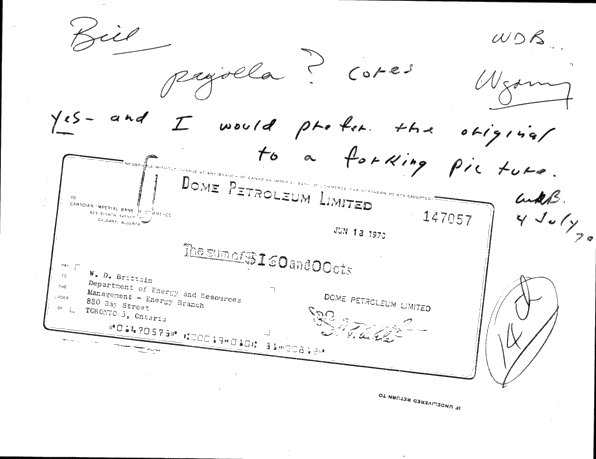 Bill
WDB
payolla ? cores
Wyoming
yes - and I would prefer the original
to a forking picture.
WDB.
4 July 70
NEGOTIABLE WITHOUT CHARGE AT ANY BRANCH OF CANADIAN IMPERIAL BANK OF COMMERCE
DOME PETROLEUM LIMITED
TO
CANADIAN IMPERIAL BANK OF COMMERCE
CALGARY, ALBERTA
147057
JUN 18 1970
The sum of $160 and 00 cts
PAY
TO
THE
ORDER
OF
W. D. Brittain
Department of Energy and Resources
Management - Energy Branch
880 Bay Street
TORONTO 5, Ontario
DOME PETROLEUM LIMITED
14 d
IF UNDELIVERED RETURN TO